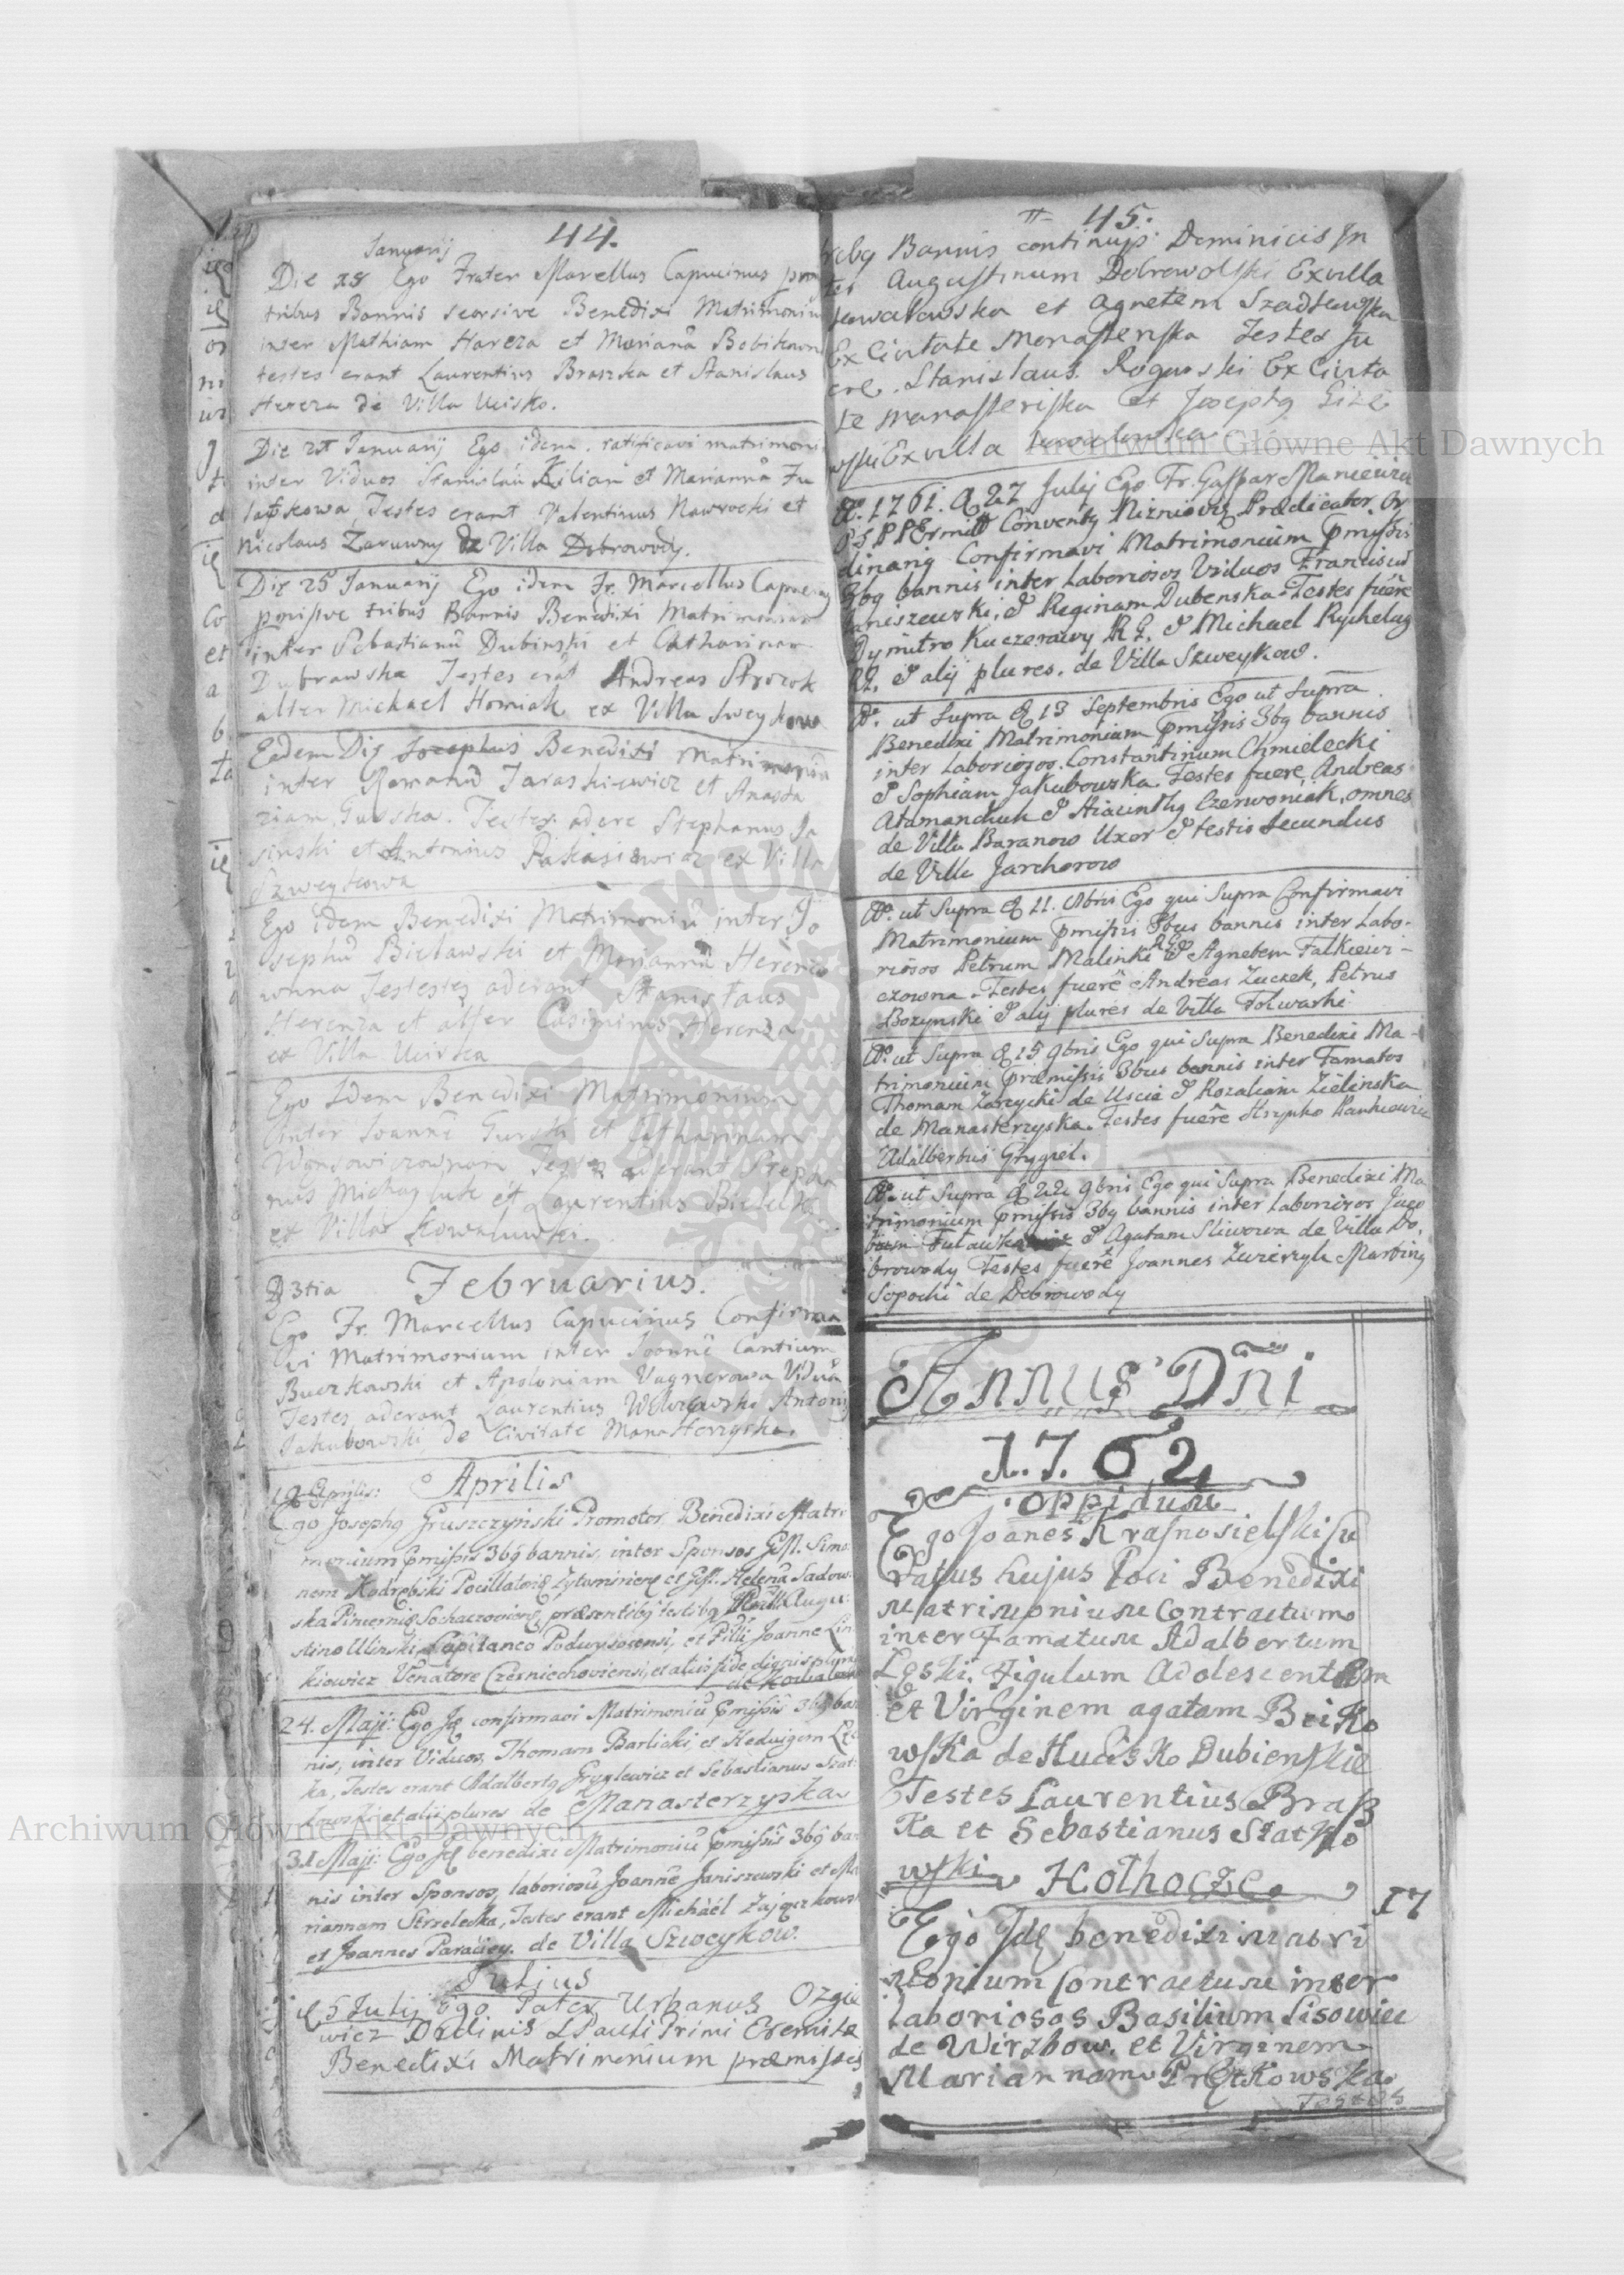 44.
Januarij
Die 18 Ego Frater Marcellus Capucinus
tribus Bannis seorsive Benedixi Matrimoniu
inter Mathiam Hareza et Marianã Bobikown
testes erant Laurentius Braszka et Stanislaus
Hereza de Villa Ucisko.
Die Januarij Ego idem ratificavi matrimoni
inter Viduos Stanislaũ Kilian et Mariannã Fu
Testes erant Valentinus Nawrocki et
Nicolaus Zaruwny de Villa Dobrowody.
Die 25 Januarij Ego idem Fr. Marcellus Capucinus
tribus Bannis Benedixi Matrimonium
inter Sebastianũ Dubinski et Catharinam
Dubrawska Testes erãt Andreas
alter Michael Homiak ex Villa Sweykow
Eadem Die Benedixi Matrimoniũ
inter Romanũ Jaraskiewicz et Anasta
ziam Gurska. Testes adere Stephanus Ja
sinski et Antonius ex Villa
Szweykowa
Ego idem Benedixi Matrimoniũ inter Jo
sephũ Bielawski et Mariannã Herenzo
wnna Testestes aderant Stanislaus
Herenza et alter Casimirus Herenza
ex Villa Uciska
Ego Idem Benedixi Matrimonium
Inter Joannẽ Gurski et Catharinam
Wąnsowiczownam Testes aderant Stepha
nus et Laurentius
ex Villa Kowaluwki.
D 3tia Februarius.
Ego Fr. Marcellus Capucinus Confirma
vi Matrimonium inter Joannẽ Cantium
Buczkowski et Apoloniam Vagnerowa Viduã
Testes aderant Laurentius Antoni
Jakubowski de Civitate Manasterzyska.
Aprilis
Aprilis:
Ego Josephg Gruszczyński Promotor Benedixi Matri
monium pmissis 3bg bannis, inter Sponsos Gsſ. Simo
nem Kodrębski Pocillatoris Zytomiriens et Helenã Sadow
ska Pincernię præsentibg testibg Augu
stino Ulinski Capitaneo Podwysocensi, et Joanne Lin
kiewicz Venatore Czerniechoviensi, et aliis fide dignis plur
de Kowalow
24. Maji: Ego Jd confirmavi Matrimoniũ pmissis 3bg ban
nis, inter Viduos, Thomam Barlicki, et Hedvigem
ka, Testes erant Adalbertg Gryglewicz et Sebastianus Szat
kowski et alii plures de Manasterzyska
31 Maji: Ego Jd benedixi Matrimoniũ pmissis 3bg ba
nis inter Sponsos, laboriosũ Joannẽ Janiszewski et Ma
riannam Strzelecka, Testes erant Michaël Zajączkows
et Joannes Paraciey. de Villa Szweykow.
Julius
5 Julij Ego Pater Urbanus Ozgie
wicz Ordinis S Pauli Primi Eremitæ
Benedixi Matrimonium præmissis
45.
Bannis continuis Dominicis In
ter Augustinum Dobrowolski Exvilla
Kowalowska et Agnetem
Ex Civitate Monasterska Testes fu
ere Stanislaus Rogowski Ex Civita
te Manasteriska et Josephg
wski Exvilla Kowalowka
Aº. 1761. D 27 Julij Ego Fr. Gaspar Mancewicz
O S P P Eremitæ Conventg Nizniovis Prædicator Or
dinarig Confirmavi Matrimonium pmissis
3bg bannis inter Laboriosos Viduos Franciscũ
Janiszewski, & Reginam Dubenska. Testes fuẽre
Dymitro Kuczerawy R G, & Michael Rychelug
RG, & alij plures. de Villa Szweykow.
Aº. ut Supra D 13 Septembris Ego ut Supra
Benedixi Matrimonium pmissis 3bg bannis
inter Laboriosos. Constantinum Chmielecki
& Sophiam Jakubowska. Testes fuere, Andreas
Atamanchuk & Hiacinthg Czerwoniak, omnes
de Villa Baranow Uxor & testis Secundus
de Villa Jarchorow
Aº. ut Supra D 11. 8bris Ego qui Supra Confirmavi
Matrimonium pmissis 3bus bannis inter Labo-
riosos Petrum Malinki RG & Agnetem Falkiewi-
czowna. Testes fuerẽ Andreas Zuczek, Petrus
Bozynski & alij plures de Villa Folwarki
Aº. ut Supra D 15 9bris Ego qui Supra Benedixi Ma-
trimonium præmissis 3bus bannis inter Famatos
Thomam Zarzycki de Uscie & Rozaliam Zielinska
de Manasterzyska. Testes fuêre Hrynko
Adalbertus Grygiel.
Aº. ut Supra D 22 9bris Ego qui Supra Benedixi Ma
trimonium pmissis 3bg bannis inter Laboriosos Jaco
bum & Agatam Sliwowa de Villa Do,
browody Testes fuerẽ Joannes Zwierzyk Marting
Sopocki de Dobrowody
Annus Dñi
1762
De oppidum
Ego Joanes Krasnosielski cu
ratus hujus loci Benedixi
matrimonium Contractum
inter Famatum Adalbertum
Leski Figulum Adolescentem
et Virginem agatam Beiko
wska de Hucisko Dubienskie
Testes Laurentius Brasz
ka et Sebastianus Szatko
wski
Holhocze
17
Ego Jdẽ benedixi matri
monium contractum inter
laboriosos Basilium Lisowiec
de Wirzbow. et Virginem
Mariannam Prętkowska
Testes